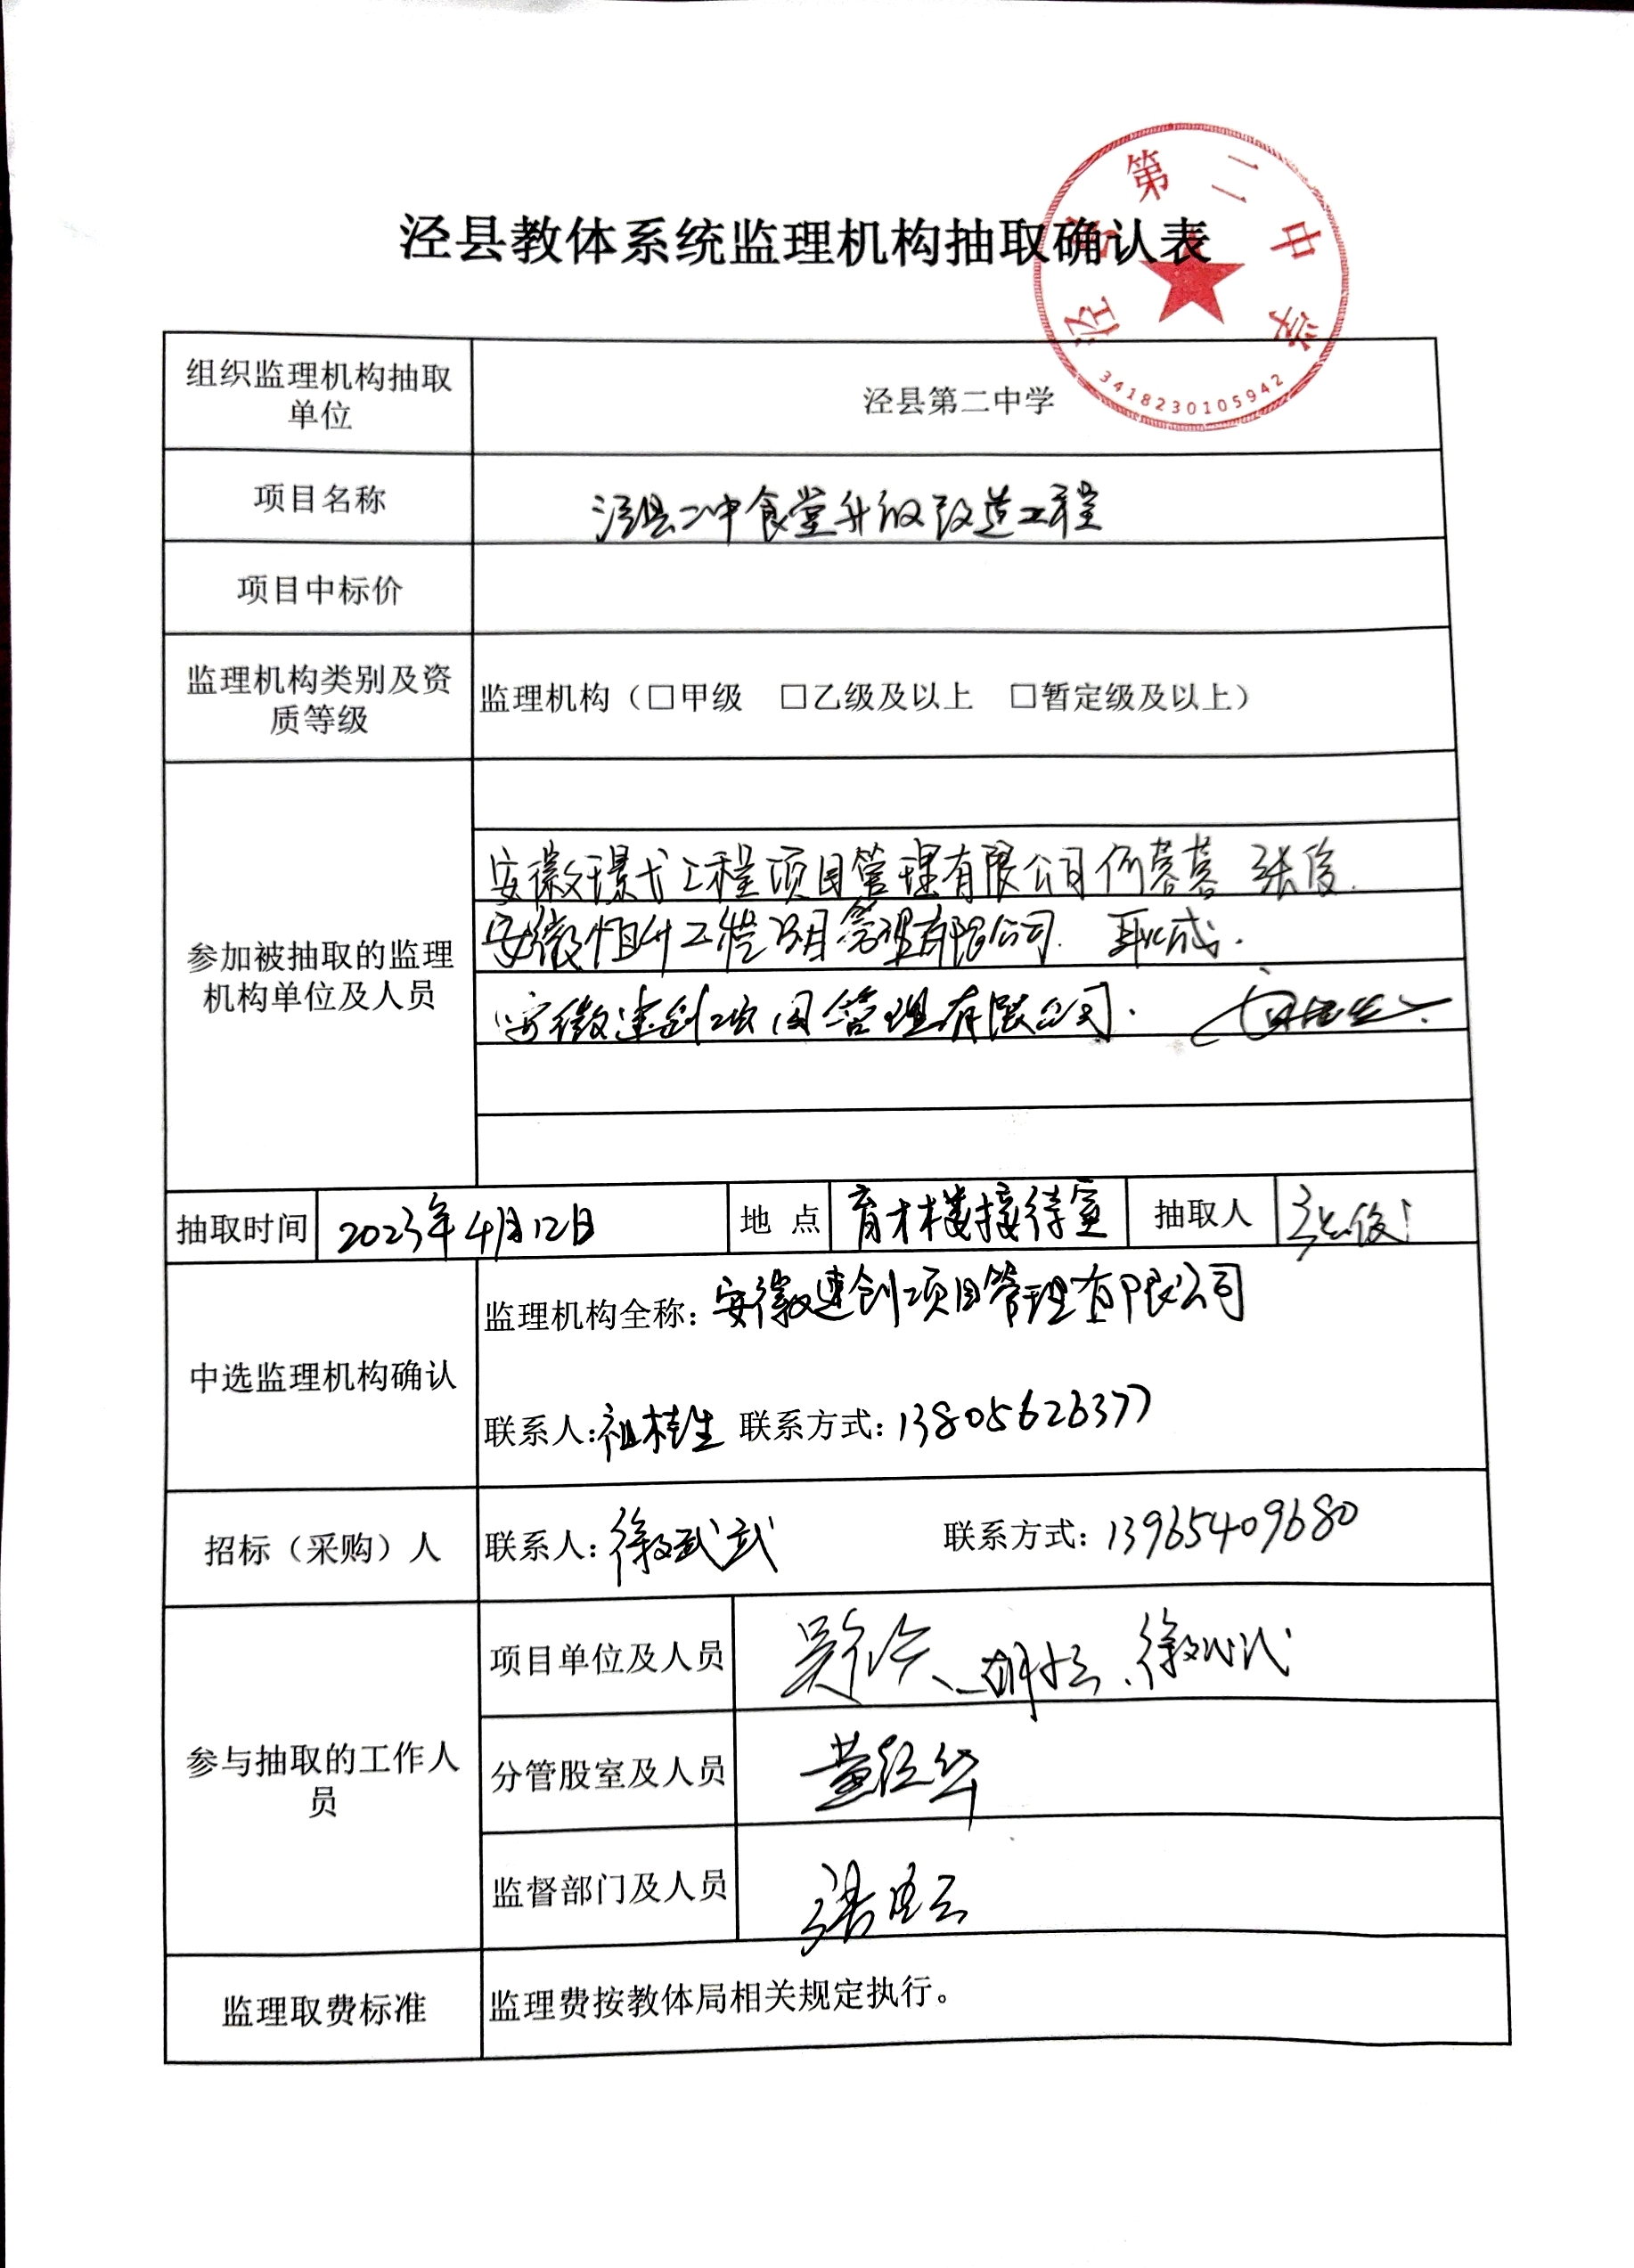 泾县第二中学
泾县教体系统监理机构抽取确认表
3418230105942
组织监理机构抽取
单位
泾县第二中学
项目名称
泾县二中食堂升级改造工程
项目中标价
监理机构类别及资
质等级
监理机构（□甲级 □乙级及以上 □暂定级及以上）
参加被抽取的监理
机构单位及人员
安徽璟弋工程项目管理有限公司 何蓉蓉 张俊
安徽恒升工程项目管理有限公司. 耿成.
安徽建创项目管理有限公司.
抽取时间 2023年4月12日 地 点 育才楼接待室 抽取人 张俊
中选监理机构确认
监理机构全称：安徽建创项目管理有限公司
联系人：祖桂生 联系方式：13805626377
招标（采购）人 联系人：徐武武 联系方式：13965409680
参与抽取的工作人
员
项目单位及人员 徐武武
分管股室及人员
监督部门及人员
监理取费标准 监理费按教体局相关规定执行。